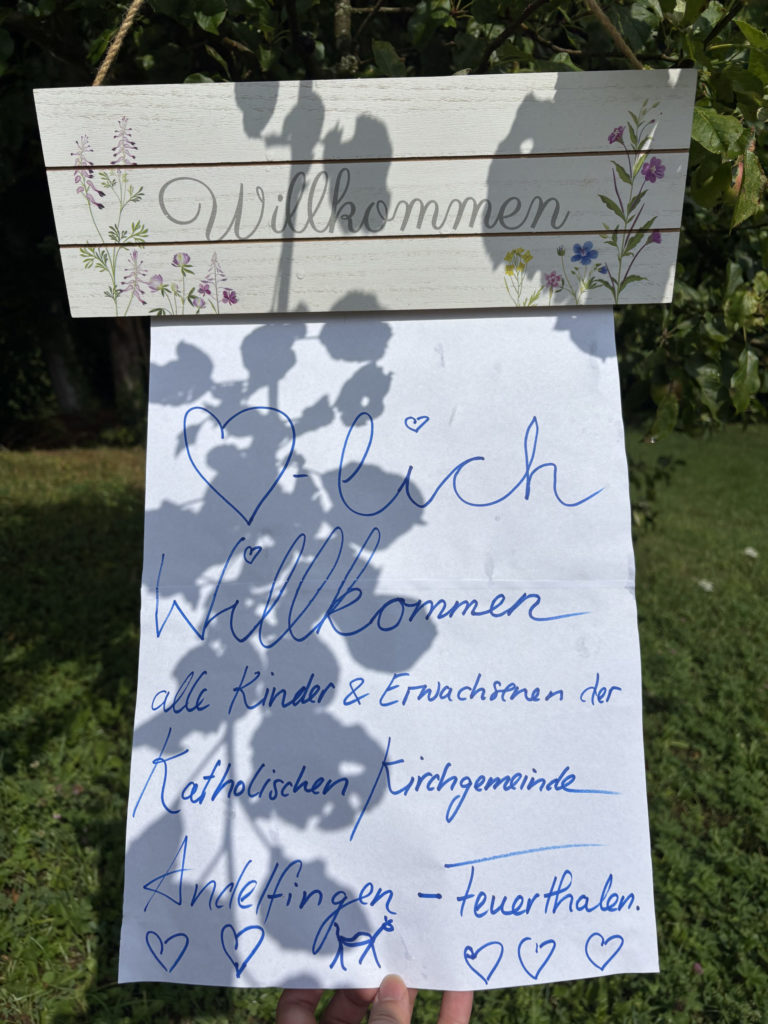 Willkommen
♡-lich
Willkommen
alle Kinder & Erwachsenen der
Katholischen Kirchgemeinde
Andelfingen - Feuerthalen.